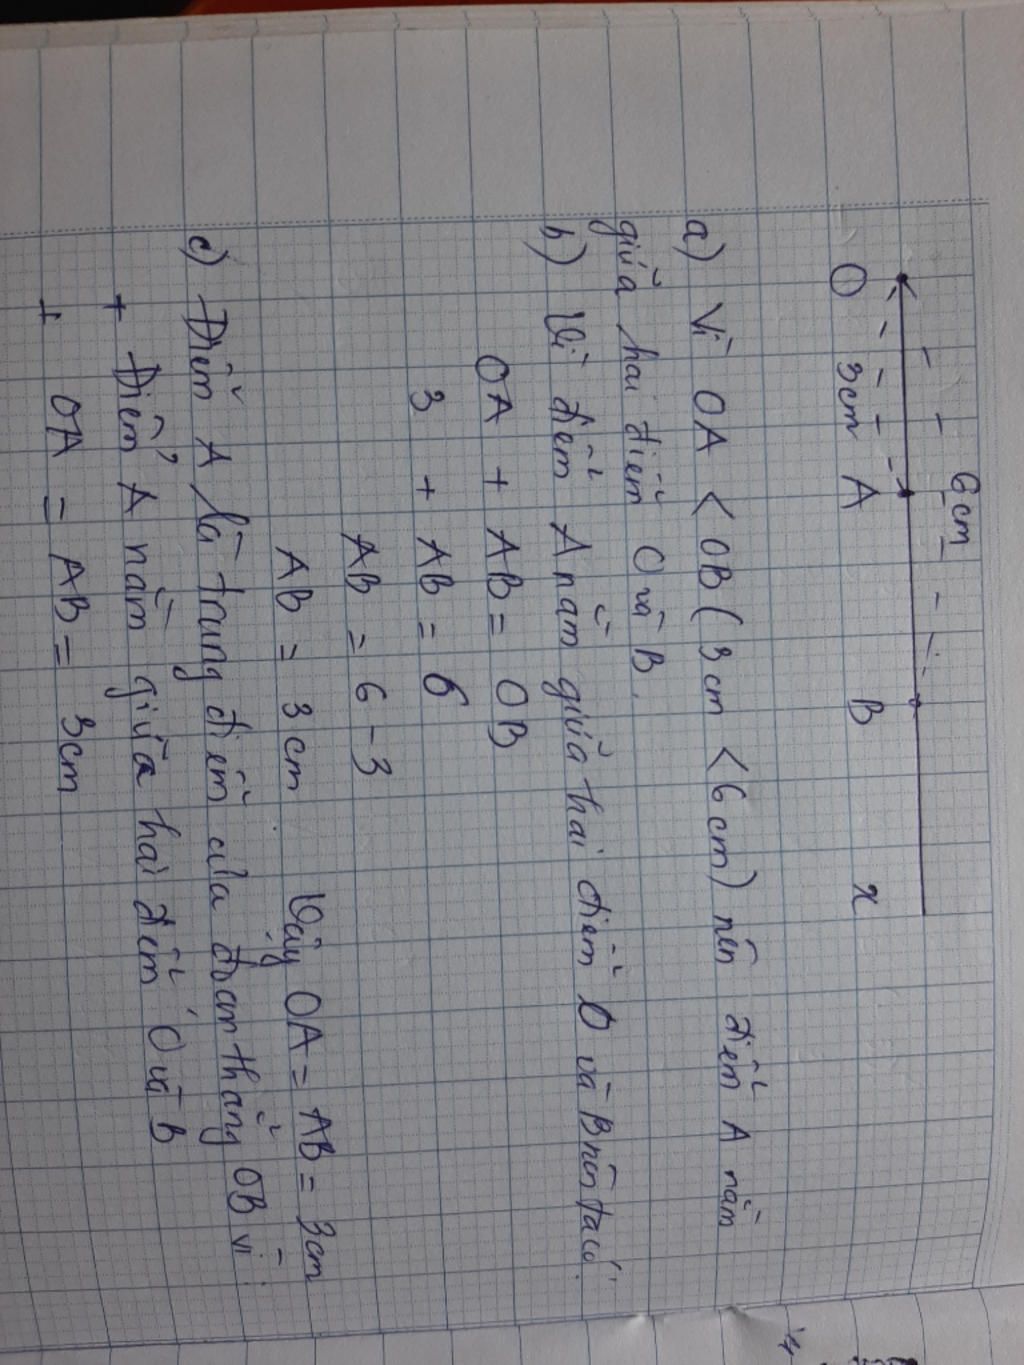 6cm
O 3cm A B x
a) Vì OA < OB (3cm < 6cm) nên điểm A nằm
giữa hai điểm O và B.
b) Vì điểm A nằm giữa hai điểm O và B nên ta có:
OA + AB = OB
3 + AB = 6
AB = 6 - 3
AB = 3cm Vậy OA = AB = 3cm
c) Điểm A là trung điểm của đoạn thẳng OB vì:
+ Điểm A nằm giữa hai điểm O và B
+ OA = AB = 3cm